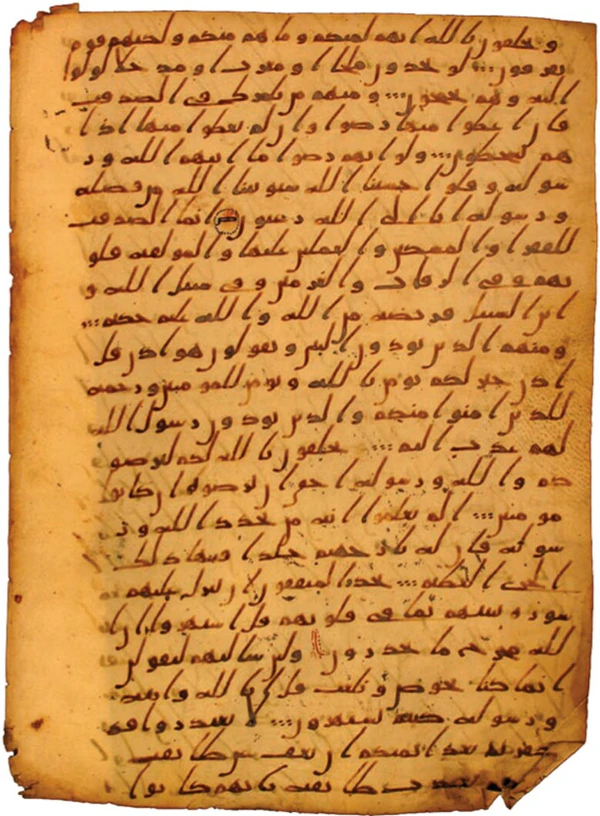 ويحلفون بالله انهم لمنكم وما هم منكم ولكنهم قوم
يفرقون لو يجدون ملجا او مغرت او مدخلا لولوا
اليه وهم يجمحون ومنهم من يلمزك في الصدقت
فان اعطوا منها رضوا وان لم يعطوا منها اذا
هم يسخطون ولو انهم رضوا ما اتيهم الله ور
سوله وقلوا حسبنا الله سيوتينا الله من فضله
ورسوله انا الى الله رغبون انما الصدقت
للفقرا والمسكين والعملين عليها والمولفة قلو
بهم وفي الرقاب والغرمين وفي سبيل الله و
ابن السبيل فريضة من الله والله عليم حكيم
ومنهم الذين يوذون النبي ويقولون هو اذن قل
اذن خير لكم يومن بالله ويومن للمومنين ورحمة
للذين امنوا منكم والذين يوذون رسول الله
لهم عذاب اليم يحلفون بالله لكم ليرضو
كم والله ورسوله احق ان يرضوه ان كانوا
مومنين الم يعلموا انه من يحدد الله ور
سوله فان له نر جهنم خلدا فيها ذلك
الخزي العظيم يحذر المنفقون ان تنزل عليهم
سورة تنبيهم بما في قلوبهم قل استهزوا ان ا
لله مخرج ما تحذرون ولين سالتهم ليقولن
انما كنا نخوض ونلعب قل ابالله وايته
ورسوله كنتم تستهزون لا تعتذروا قد
كفرتم بعد ايمنكم ان نعف عن طايفة
نعذب طايفة بانهم كانوا